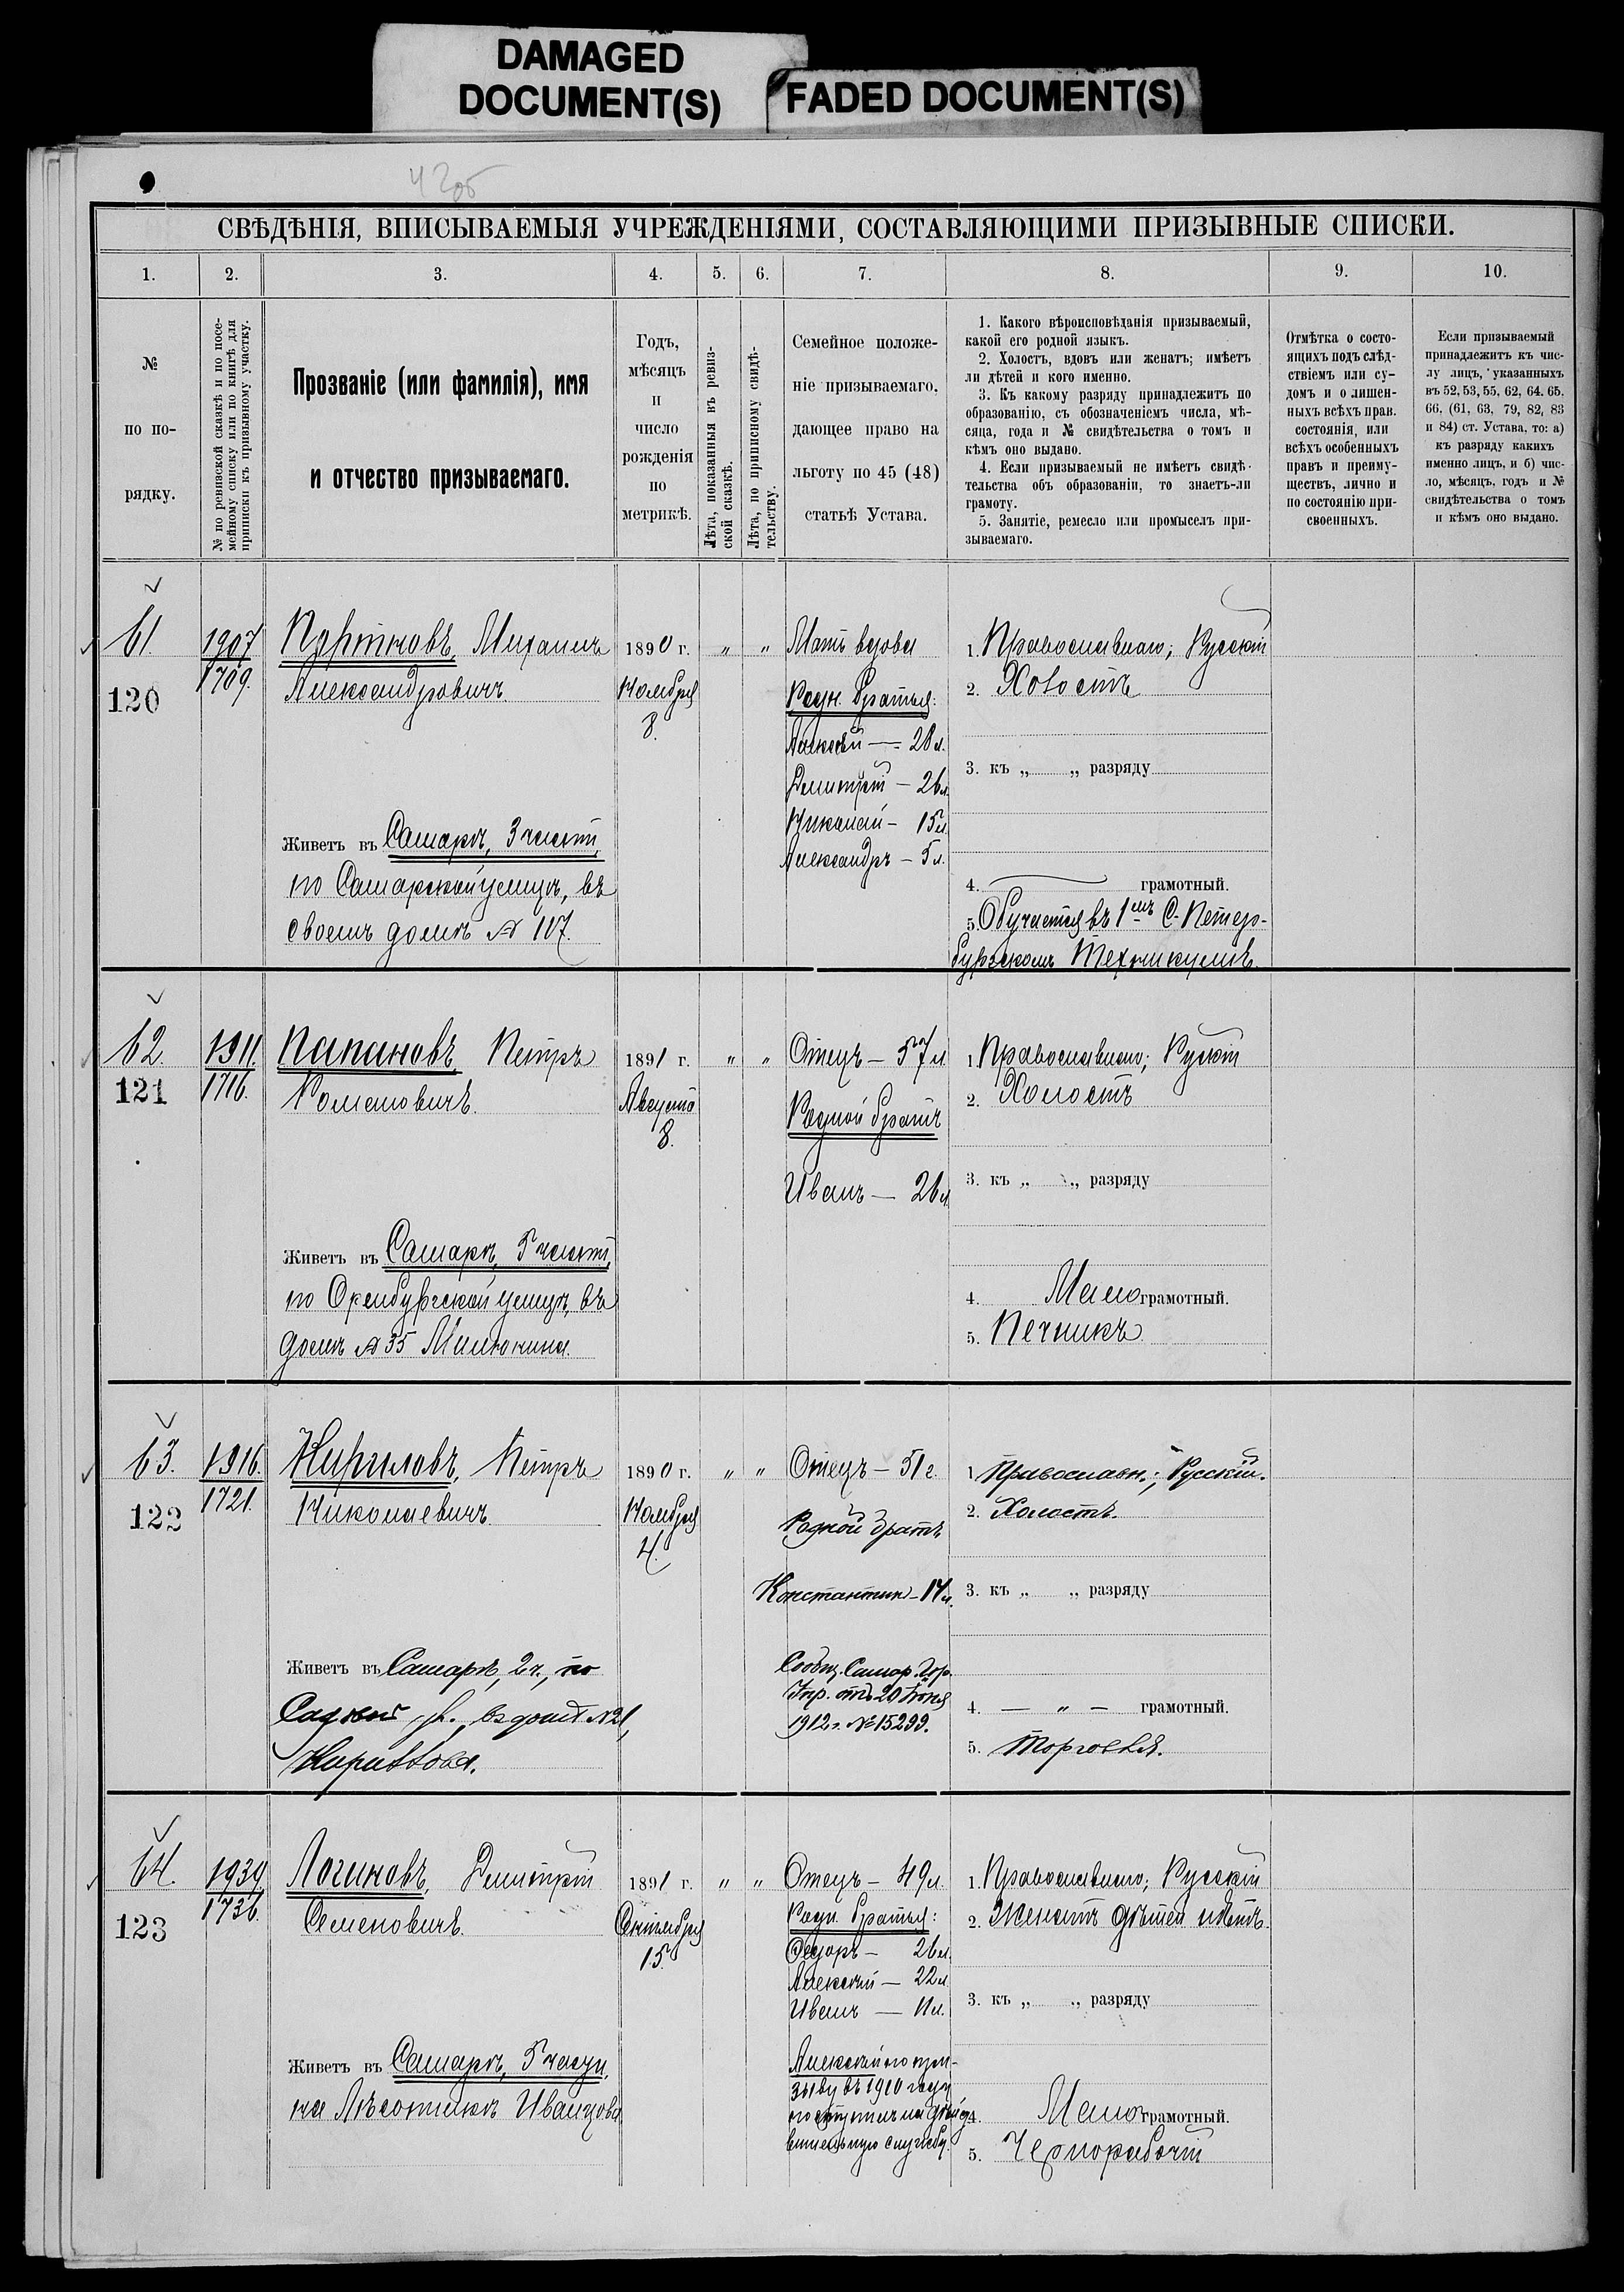 DAMAGED
DOCUMENT(S)
FADED DOCUMENT(S)
42об
СВѢДѢНІЯ, ВПИСЫВАЕМЫЯ УЧРЕЖДЕНІЯМИ, СОСТАВЛЯЮЩИМИ ПРИЗЫВНЫЕ СПИСКИ.
1. 2. 3. 4. 5. 6. 7. 8. 9. 10.
№
по по-
рядку.
№ по ревизской сказкѣ и по посе-
мейному списку или по книгѣ для
приписки къ призывному участку.
Прозваніе (или фамилія), имя
и отчество призываемаго.
Годъ,
мѣсяцъ
и
число
рожденія
по
метрикѣ.
Лѣта, показанныя въ ревиз-
ской сказкѣ.
Лѣта, по приписному свидѣ-
тельству.
Семейное положе-
ніе призываемаго,
дающее право на
льготу по 45 (48)
статьѣ Устава.
1. Какого вѣроисповѣданія призываемый,
какой его родной языкъ.
2. Холостъ, вдовъ или женатъ; имѣетъ
ли дѣтей и кого именно.
3. Къ какому разряду принадлежитъ по
образованію, съ обозначеніемъ числа, мѣ-
сяца, года и № свидѣтельства о томъ и
кѣмъ оно выдано.
4. Если призываемый не имѣетъ свидѣ-
тельства объ образованіи, то знаетъ-ли
грамоту.
5. Занятіе, ремесло или промыселъ при-
зываемаго.
Отмѣтка о состо-
ящихъ подъ слѣд-
ствіемъ или су-
домъ и о лишен-
ныхъ всѣхъ прав.
состоянія, или
всѣхъ особенныхъ
правъ и преиму-
ществъ, лично и
по состоянію при-
своенныхъ.
Если призываемый
принадлежитъ къ чис-
лу лицъ, указанныхъ
въ 52, 53, 55, 62, 64. 65.
66, (61, 63, 79, 82, 83
и 84) ст. Устава, то: а)
къ разряду какихъ
именно лицъ, и б) чис-
ло, мѣсяцъ, годъ и №
свидѣтельства о томъ
и кѣмъ оно выдано.
61.
120
1907
1709.
Михаилъ
Александровичъ
Живетъ въ Самарѣ, 3 части,
по Самарской улицѣ, въ
своемъ домѣ № 107.
1890 г.
Ноября
8.
" "
Мать вдова
Родн. братья:
Алексѣй — 28 л.
Димитрій — 26 л.
Николай — 15 л.
Александръ — 5 л.
1. Православнаго; Русскій
2. Холостъ
3. къ „ „ разряду
4. грамотный.
5. Обучается въ 1мъ С.-Петер-
бургскомъ Техникумѣ.
62.
121
1911.
1716.
Папановъ, Петръ
Романовичъ.
Живетъ въ Самарѣ, 5 части,
по Оренбургской улицѣ, въ
домѣ № 35 Милюкина.
1891 г.
Августа
8.
" "
Отецъ — 57 л.
Родной братъ
Иванъ — 26 л.
1. Православнаго; Рускій
2. Холостъ
3. къ „ „ разряду
4. Малограмотный.
5. Печникъ
63.
122
1916.
1721.
Кириловъ, Петръ
Николаевичъ
Живетъ въ Самарѣ, 2 ч., по
Садовой ул. въ домѣ № 21,
Кириллова.
1890 г.
Ноября
4.
" "
Отецъ — 51 г.
Родной братъ
Константин — 14 л.
Сообщ. Самар. Гор.
Упр. отъ 20 Июня
1912 г. № 15299.
1. Православн.; Русскій.
2. Холостъ.
3. къ „ „ разряду
4. — " — грамотный.
5. Торговля.
64.
123
1939.
1736.
Логиновъ, Димитрій
Семеновичъ.
Живетъ въ Самарѣ, 5 части,
на Лѣсопилкѣ Иванцова
1891 г.
Сентября
15.
" "
Отецъ — 49 л.
Родн. братья:
Ѳедоръ — 26 л.
Алексѣй — 22 л.
Иванъ — 11 л.
Алексѣй по при-
зыву въ 1910 году
поступилъ на дѣйст-
вительную службу.
1. Православнаго; Русскій
2. Женатъ дѣтей нѣтъ.
3. къ „ „ разряду
4. Малограмотный.
5. Чернорабочій